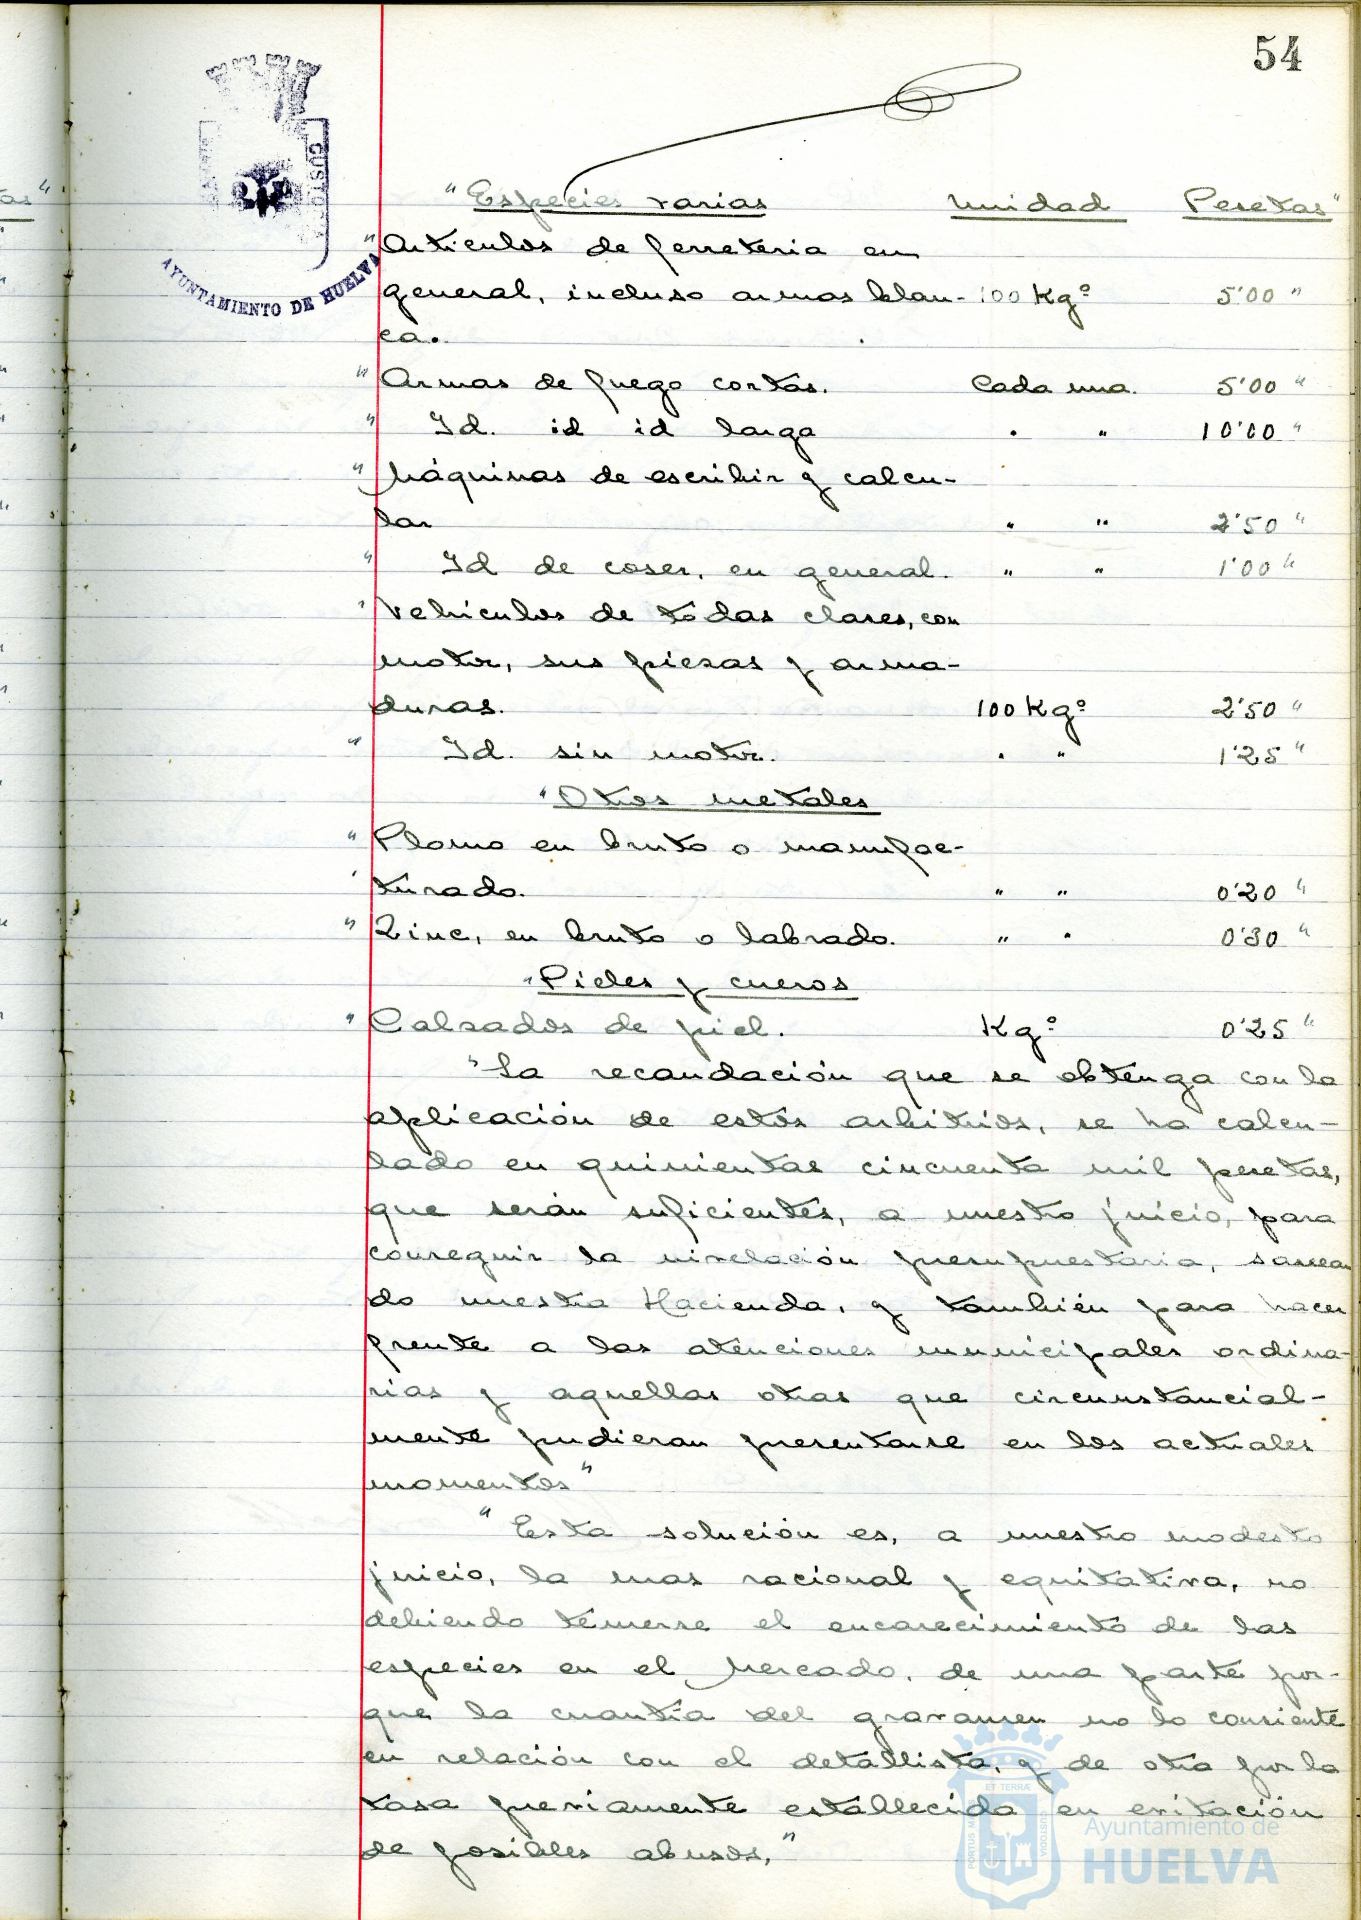 54
tas"
"Especies varias Unidad Pesetas"
"Articulos de ferreteria en
general, incluso armas blan- 100 Kgº 5'00 "
ca.
"Armas de fuego cortas. Cada una. 5'00 "
" Id. id id larga " " 10'00 "
"Máquinas de escribir y calcu-
lar " " 2'50 "
" Id de coser, en general. " " 1'00 "
"Vehiculos de todas clases, con
motor, sus piezas y arma-
duras. 100 Kgº 2'50 "
" Id. sin motor. " " 1'25 "
"Otros metales
"Plomo en bruto o manufac-
turado. " " 0'20 "
"Zinc, en bruto o labrado. " " 0'30 "
"Pieles y cueros
"Calzados de piel. Kgº 0'25 "
"La recaudación que se obtenga con la
aplicación de estos arbitrios, se ha calcu-
lado en quinientas cincuenta mil pesetas,
que serán suficientes, a nuestro juicio, para
conseguir la nivelación presupuestaria, sanean
do nuestra Hacienda, y también para hacer
frente a las atenciones municipales ordina-
rias y aquellas otras que circunstancial-
mente pudieran presentarse en los actuales
momentos"
"Esta solución es, a nuestro modesto
juicio, la mas racional y equitativa, no
debiendo temerse el encarecimiento de las
especies en el Mercado, de una parte por-
que la cuantía del gravamen no lo consiente
en relación con el detallista, y de otra por la
tasa previamente establecida en evitación
de posibles abusos."
CUSTO
AYUNTAMIENTO DE HUELVA
PORTUS MARIS ET TERRÆ CUSTODIA
Ayuntamiento de
HUELVA